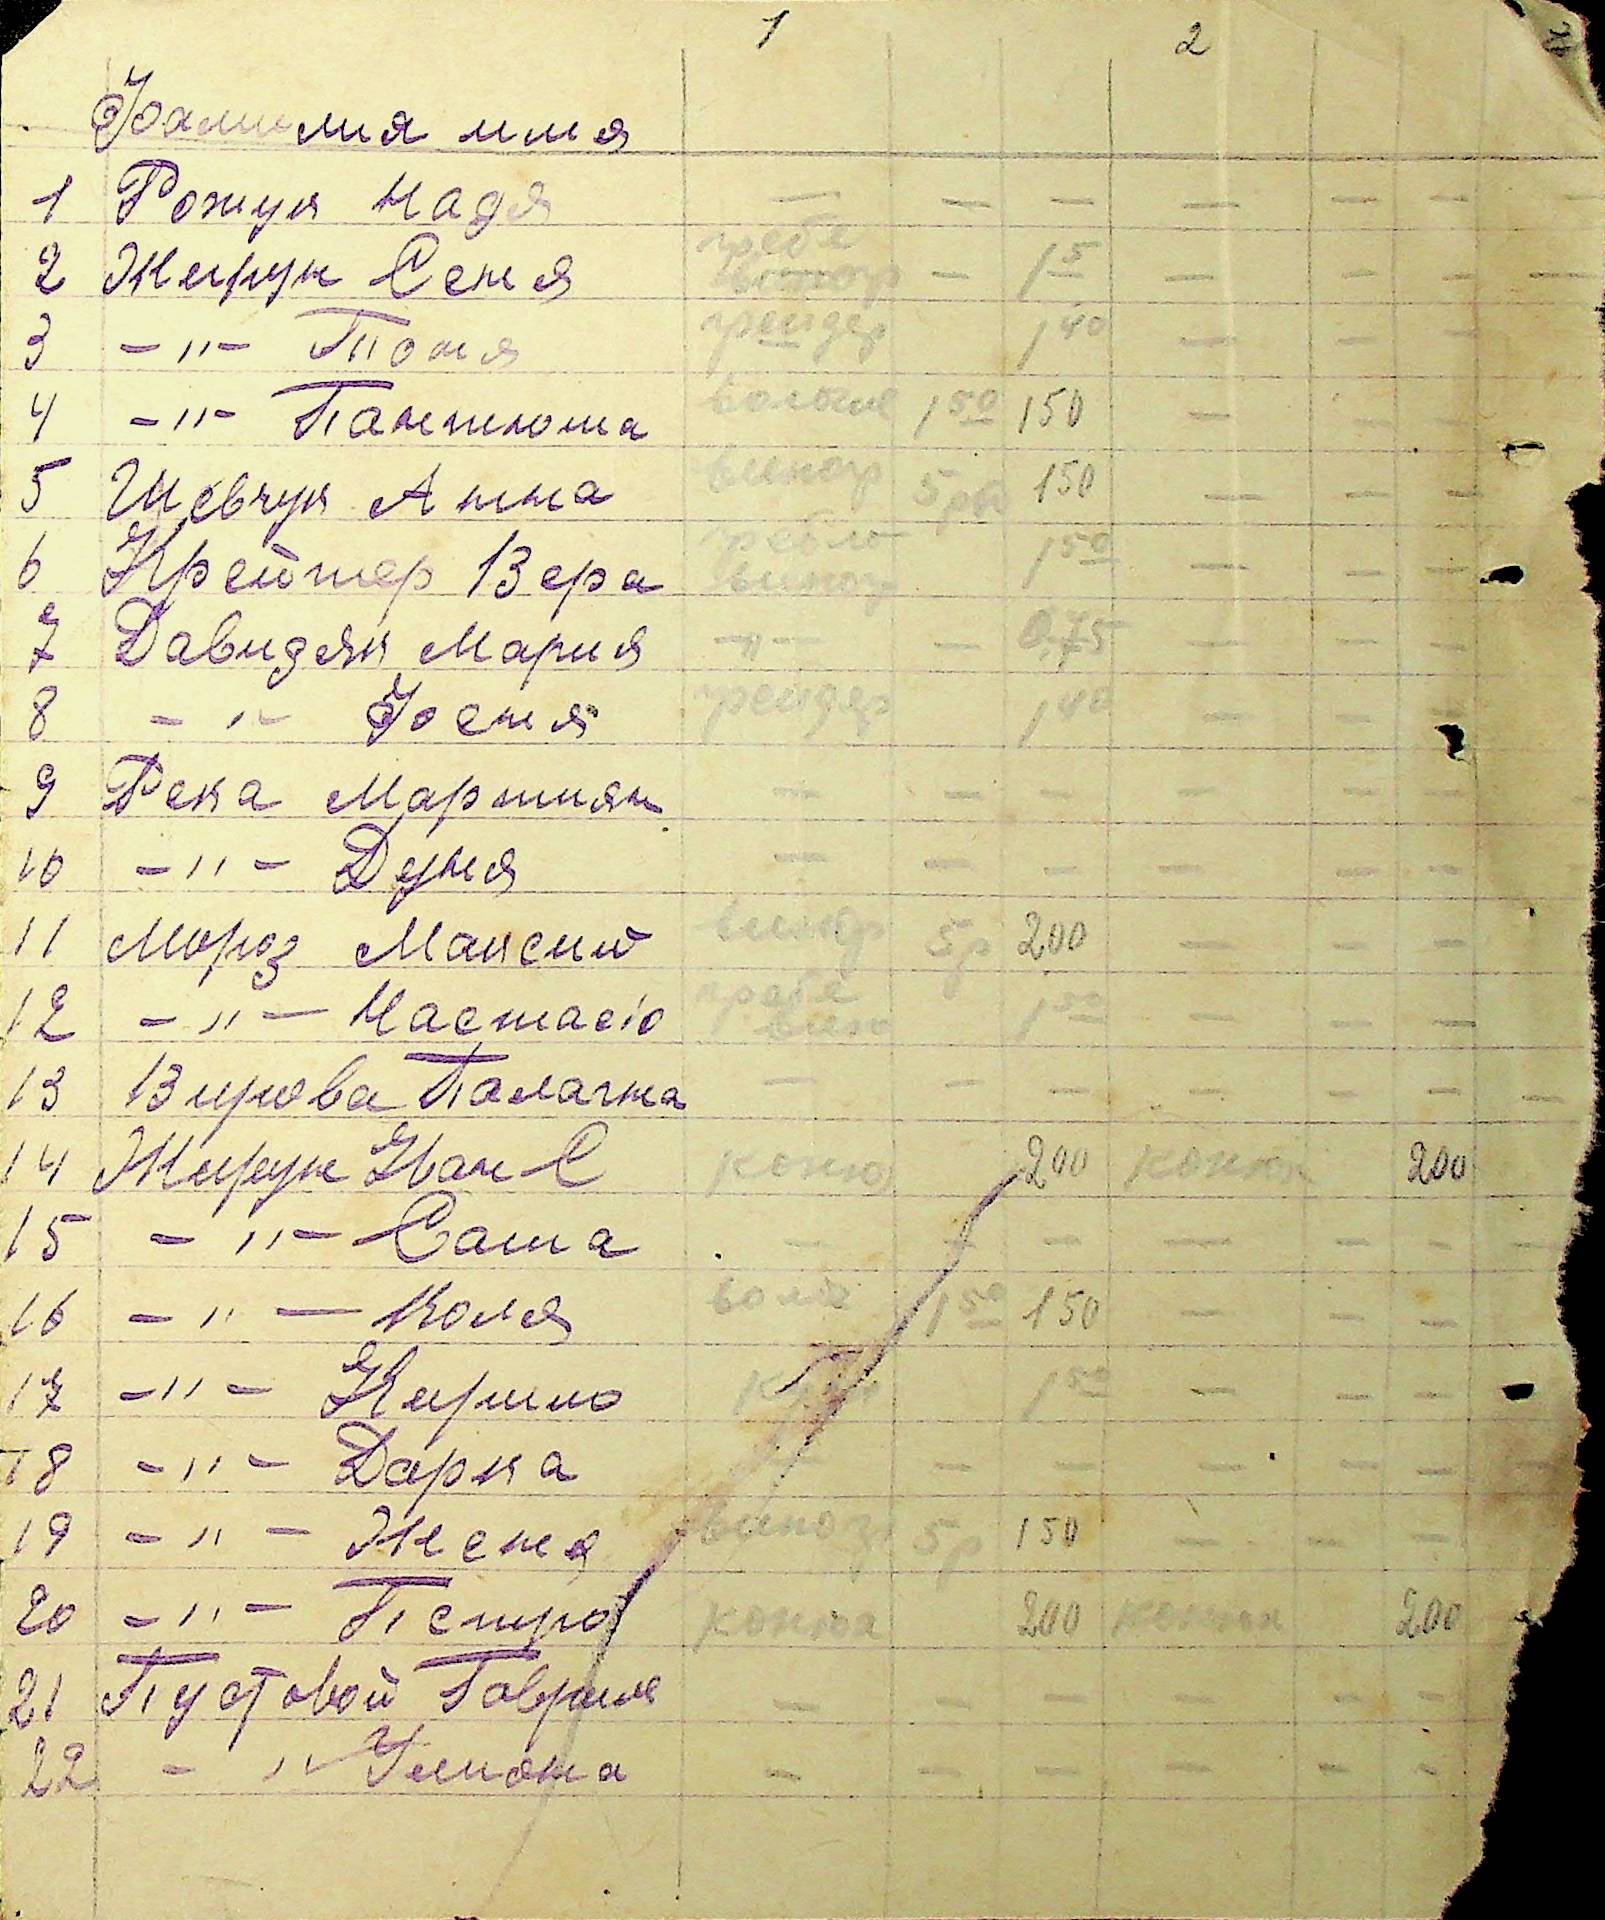 1 2
Фамилия имя
1 Рожук Надя — — — — — —
2 Жирун Сеня гребе виног — 1 5 — — —
3 —"— Тоня грейдер 1 40 — — —
4 —"— Пантюша 1 50 150 — — —
5 Шевчук Анна виног 5 рк 150 — — —
6 Крейтер Вера гребло виног 1 50 — — —
7 Давидяк Мария —"— — 0,75 — — —
8 —"— Фосня грейдер 1 40 — — —
9 Река Мартиян — — — — — —
10 —"— Дуня — — — — — —
11 Мороз Максим виногр 5р 200 — — —
12 —"— Настасіо гребе вино 1 50 — — —
13 Палагна — — — — — —
14 Жирун Иван С конюх 200 конюх 200
15 —"— Саша — — — — — —
16 —"— Коля 1 50 150 — — —
17 —"— Кирило 1 50 — — —
18 —"— Дарка — — — — — —
19 —"— Женя виног 5р 150 — — —
20 —"— Петро конюх 200 конюх 200
21 Пустовой Гаврило — — — — — —
22 —" Улиана — — — — — —